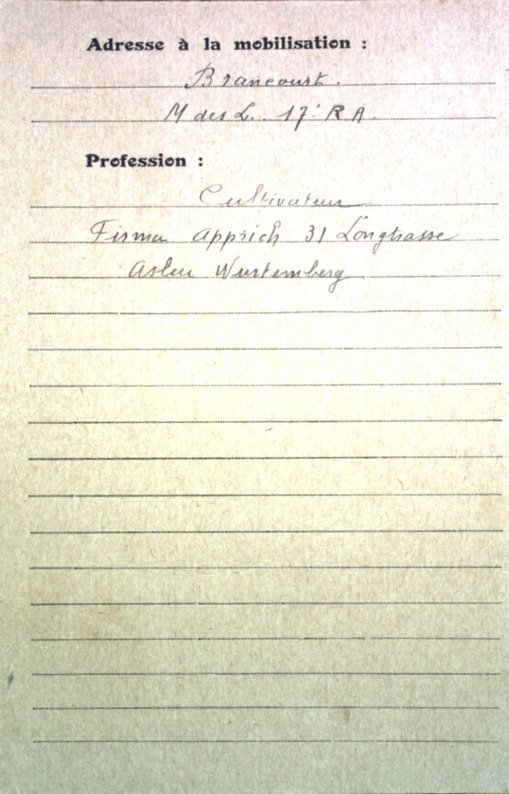 Adresse à la mobilisation :
Brancourt.
M des L. 17e R A.
Profession :
Cultivateur
Firma Apprich 31 Longtrasse
Aslen Wurtemberg